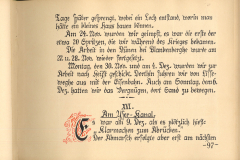 Tage später gesprengt, wobei ein Loch entstand, worin man
hätte ein kleines Haus bauen können.
Am 24. Nov. wurden wir geimpft, es war die erste der
etwa 20 Spritzen, die wir während des Krieges bekamen.
Die Arbeit in den Dünen bei Blankenberghe wurde am
27. u. 28. Nov. wieder fortgesetzt.
Montag, den 30. Nov. und am 4. Dez. wurden wir zur
Arbeit nach geschickt. Dorthin fuhren wir von Uitkerke
aus mit der Eisenbahn. Auch am Sonntag, dem 6.
Dez. hatten wir das Vergnügen, dort Sand zu bewegen.
Am Yser-Kanal.
Es war am 9. Dez. als es plötzlich hieß:
Klarmachen zum Abrücken.
Der Abmarsch erfolgte aber erst am nächsten
-97-